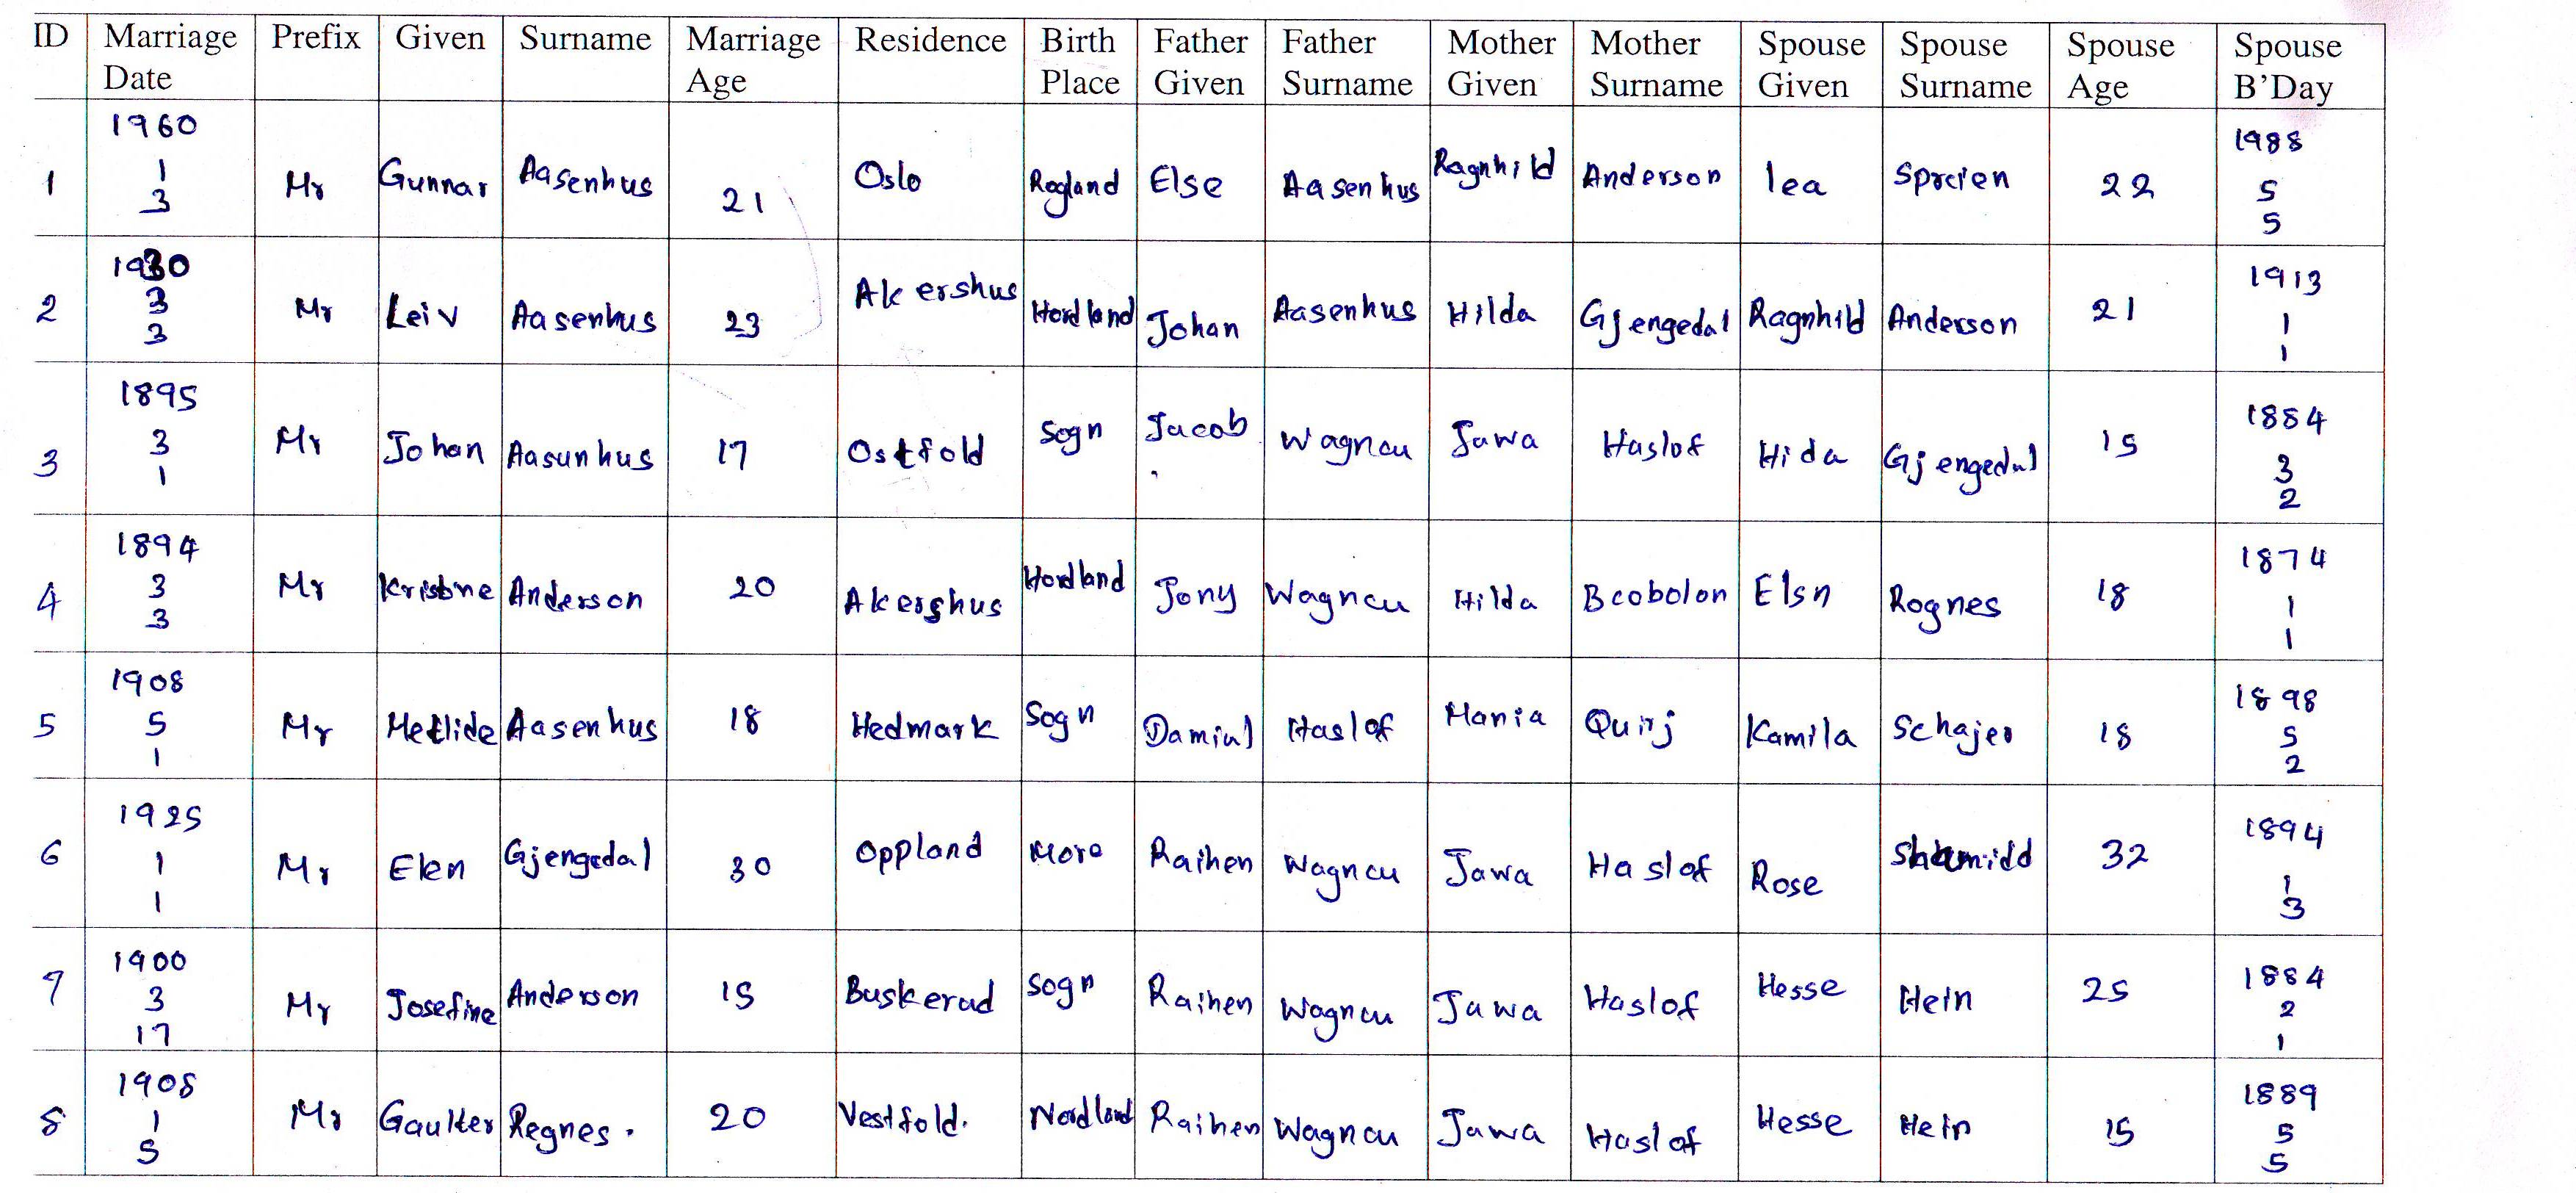 ID Marriage Date Prefix Given Surname Marriage Age Residence Birth Place Father Given Father Surname Mother Given Mother Surname Spouse Given Spouse Surname Spouse Age Spouse B'Day
1 1960 1 3 Mr Gunnar Aasenhus 21 Oslo Rogland Else Aasenhus Ragnhild Anderson lea Sprcien 22 1988 5 5
2 1930 3 3 Mr Leiv Aasenhus 23 Akershus Hordland Johan Aasenhus Hilda Gjengedal Ragnhild Anderson 21 1913 1 1
3 1895 3 1 Mr Johan Aasunhus 17 Ostfold Sogn Jacob Wagncu Jawa Haslof Hida Gjengedal 15 1884 3 2
4 1894 3 3 Mr Kristine Anderson 20 Akershus Hordland Jony Wagncu Hilda Bcobolon Elsn Rognes 18 1874 1 1
5 1908 5 1 Mr Metlide Aasenhus 18 Hedmark Sogn Damial Haslof Mania Quirj Kamila Schajer 18 1898 5 2
6 1925 1 1 Mr Elen Gjengedal 30 Oppland More Raihen Wagncu Jawa Haslof Rose 32 1894 1 3
7 1900 3 17 Mr Josefine Anderson 15 Buskerud Sogn Raihen Wagncu Jawa Haslof Hesse Hein 25 1884 2 1
8 1908 1 5 Mr Gaulter Regnes. 20 Vestfold. Nordland Raihen Wagncu Jawa Haslof Hesse Hein 15 1889 5 5